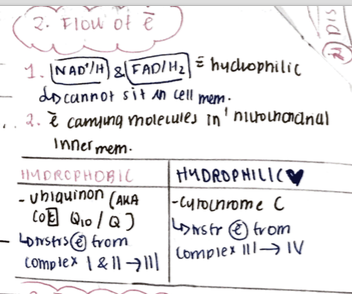 2. Flow of ē
1. NAD⁺/H & FAD/H₂ = hydrophilic
↳ cannot sit in cell mem.
2. ē carrying molecules in mitochondrial
inner mem.
HYDROPHOBIC
- ubiquinon (AKA
COE Q10 / Q)
↳ trnsfrs ē from
complex I & II → III
HYDROPHILIC ♥
- cytochrome C
↳ trnsfr ē from
complex III → IV
DIS